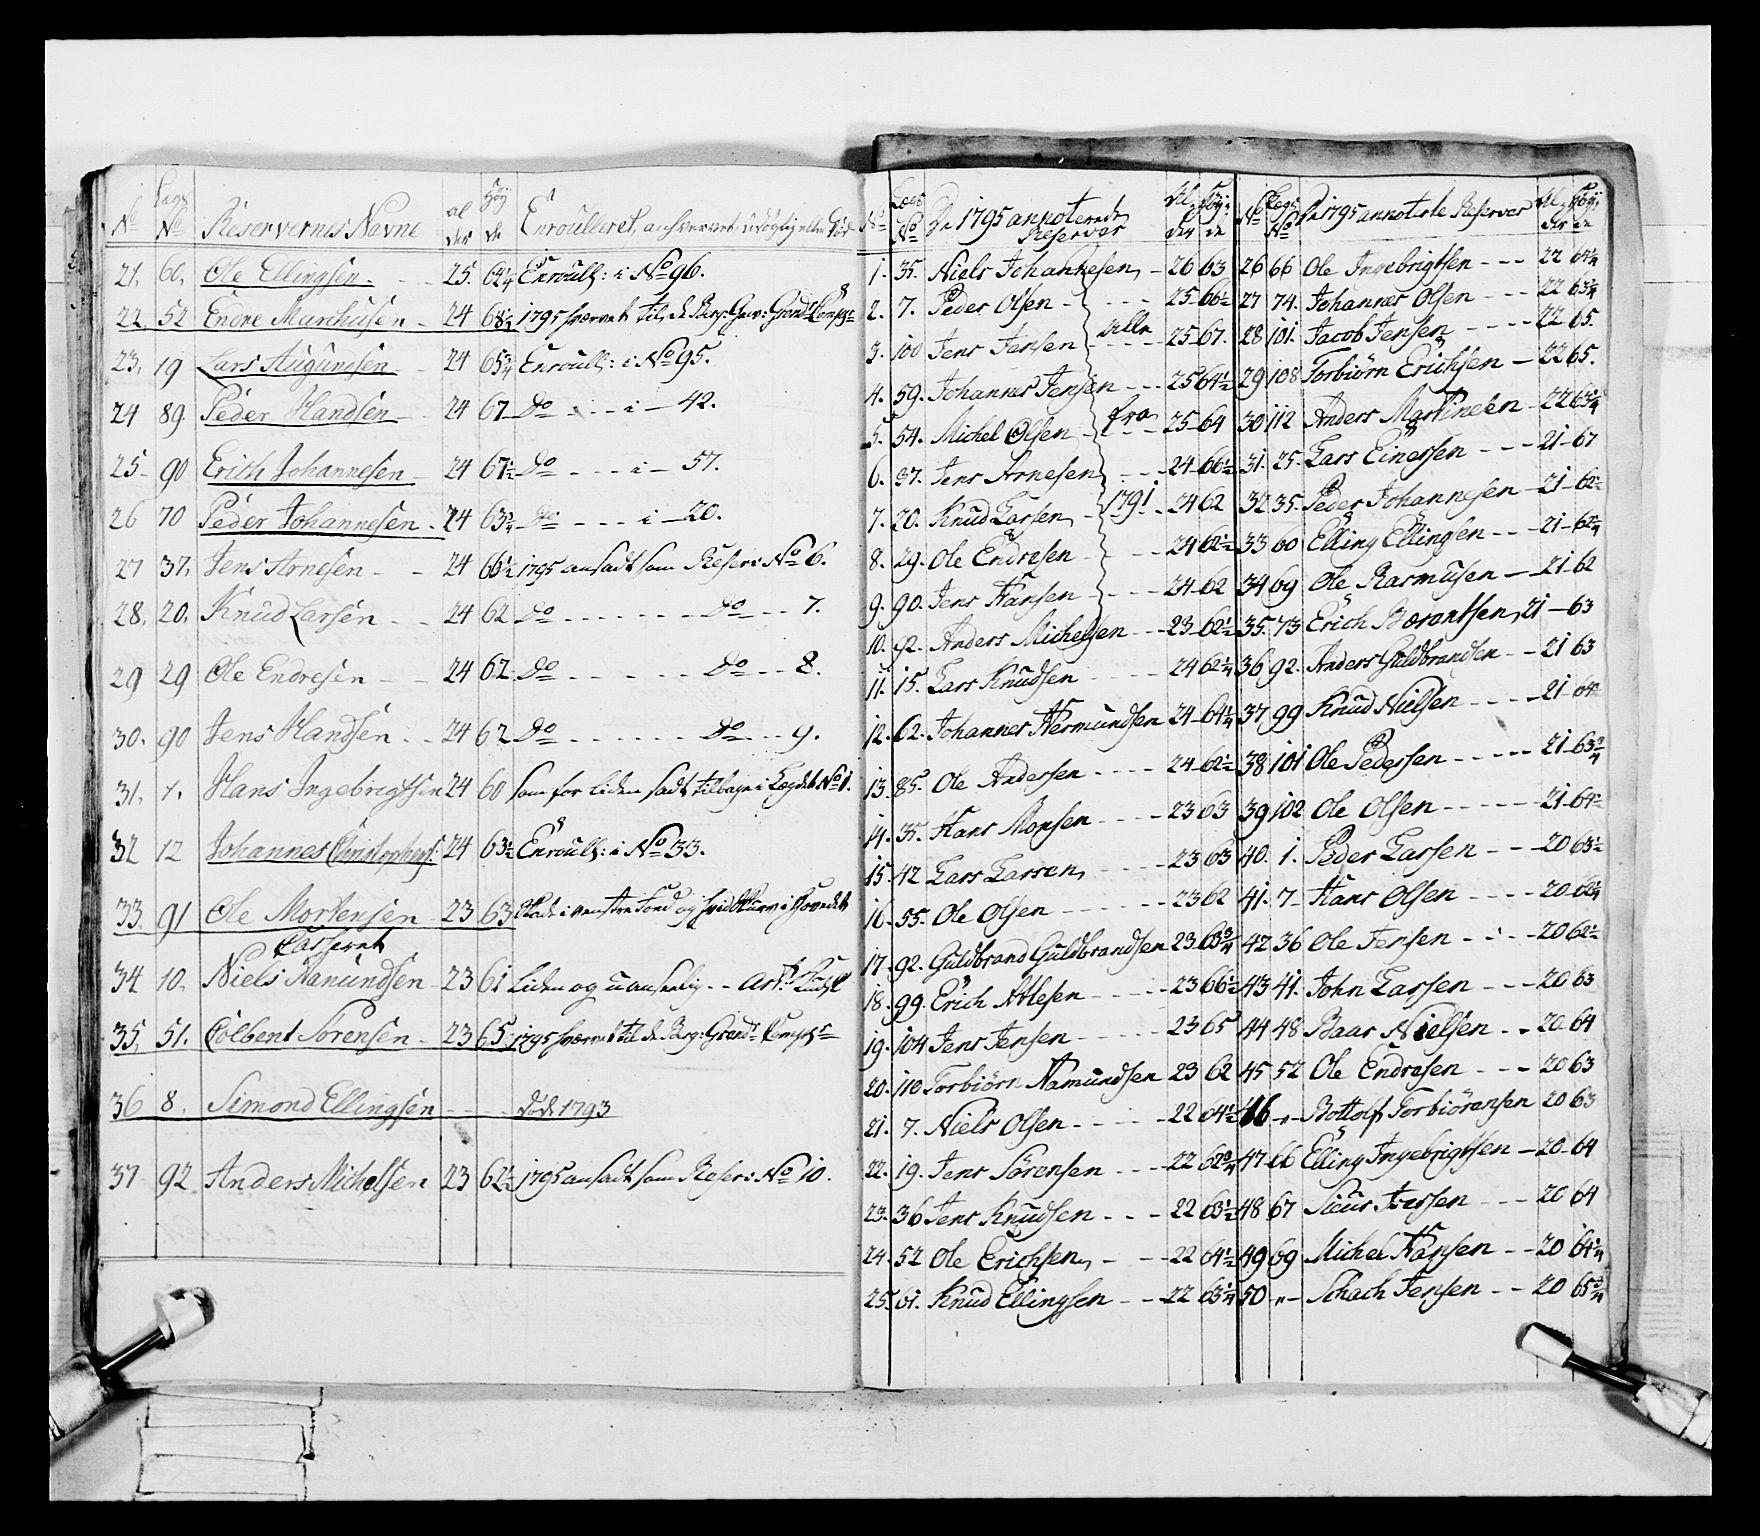 No Lægs No Reservernes Navne al der Høy de Enroulleret, udygtig eller Død
21, 60, Ole Ellingsen 25. 64 1/4 Enroull: i No 96.
22 52 Endre Marchusen 24 1795 hværvet til de Berg: Gew: Grend: Compge
23, 19 Lars Augundsen 24 65 3/4 Enroull: i No 95.
24 89 Peder Handsen 24 67 Do i 42.
25 90 Erich Johannesen 24 67 1/2 Do i 57.
26 70 Peder Johannesen 24 63 3/4 Do i 20.
27 37, Jens Arnesen 24 66 1/2 1795 ansadt som Reserv: No 6.
28, 20, Knud Larsen 24 62 Do Do 7.
29 29 Ole Endresen 24 62 Do Do 8.
30. 90 Jens Handsen 24 62 Do Do 9.
31, 1, Hans Ingebrigtsen 24 60 som for liden sadt tilbage i Lægdet No 1.
32 12 Johannes Christophers: 24 63 1/2 Enroull: i No 33.
33 91 Ole Mortensen 23 63 Skade i venstre Foed og hvid Skurv i Hovedet
Casseret
34 10, Niels Namundsen 23 61 Liden og uanseelig
35, 51. Colbent Sørensen 23 65 1795 hværvet til de Berg: Grend: Compge
36 8, Simond Ellingsen død 1793
37 92 Anders Michelsen 23 62 1/2 1795 ansadt som Reserv: No 10.
No Lægs No De 1795 annoterede Reserver Al der Høy de
1. 35. Niels Johannesen 26 63
2. 7. Peder Olsen 25 66 1/2
3. 100 Jens Jensen alle 25 67.
4. 59. Johannes Jensen 25 64 1/2
5. 54. Michel Olsen fra 25 64
6. 37. Jens Arnesen 24 66 1/2
7. 20. Knud Larsen 1791 24 62
8. 29. Ole Endresen 24 62 1/2
9. 90. Jens Hansen 24 62
10. 92. Anders Michelsen 23 62 1/2
11. 15. Lars Knudsen 24 62 1/4
12. 62. Johannes Hermundsen 24 64 1/4
13. 85. Ole Andersen 24 62 1/2
14. 35. Hans Monsen 23 63
15. 42 Lars Larsen 23 63
16. 55. Ole Olsen 23 62
17. 92. Guldbrand Guldbrandsen 23 63 3/4
18. 99. Erich Atlesen 23 66 1/2
19. 104 Jens Jensen 23 65
20. 110 Torbiørn Namundsen 23 62
21. 7. Niels Olsen 22 64 1/2
22. 19. Jens Sørensen 22 62 3/4
23. 36 Jens Knudsen 22 63 1/2
24. 52 Ole Erichsen 22 64 1/2
25. 61. Knud Ellingsen 22 63 1/4
No Lægs No De 1795 annoterte Reserver Al der Høy de
26 66 Ole Ingebrigtsen 22 64 1/4
27 74. Johannes Olsen 22 63 1/4
28 101. Jacob Jensen 22 65.
29 108 Torbiørn Erichsen 22 65.
30 112 Anders Martinesen 22 63 3/4
31. 25. Lars Einersen 21 67
32 35. Peder Johannesen 21 62 1/2
33 60 Elling Ellingsen 21 62 1/4
34 69 Ole Rasmusen 21 62
35. 73 Erich Berentsen 21 63
36 92. Anders Guldbrandsen 21 63
37 99 Knud Nielsen 21 64 1/2
38 101 Ole Pedersen 21 63 3/4
39 102 Ole Olsen 21 64 1/2
40. 1. Peder Larsen 20 63 1/2
41. 7 Hans Olsen 20 62 1/4
42 36 Ole Jensen 20 62 1/2
43 41. John Larsen 20 63
44 48 Baar Nielsen 20 64
45 52 Ole Endresen 20 63
46 " Bottolf Torbiørensen 20 63
47 66 Elling Ingebrigtsen 20 64
48 67 Siur Iversen 20 64
49 69 Michel Hansen 20 64 1/4
50 " Schach Jensen 20 65 3/4